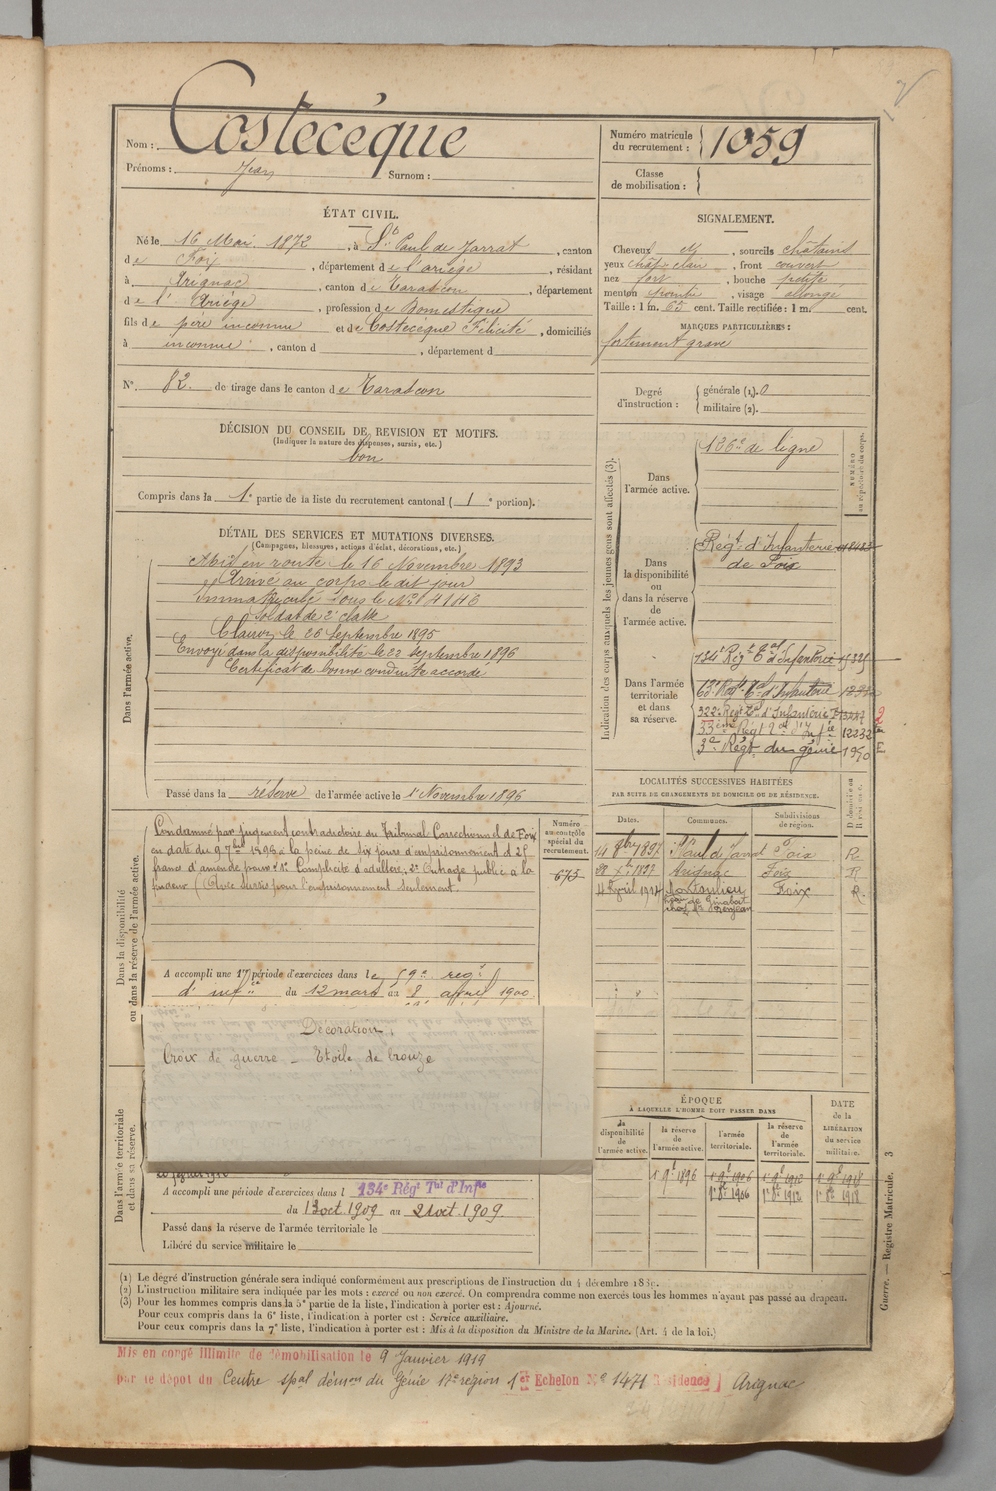 Nom : Costecèque
Prénoms : Jean Surnom :
Numéro matricule du recrutement : 1059
Classe de mobilisation :
ÉTAT CIVIL.
Né le 16 Mai 1872, à St Paul de Jarrat, canton
de Foix, département de l'ariège, résidant
à Arignac, canton de Tarascon, département
de l'Ariège, profession de Domestique
fils de père inconnu et de Costecèque Félicité, domiciliés
à inconnue, canton d , département d
N° 82 de tirage dans le canton de Tarascon
SIGNALEMENT.
Cheveux et, sourcils châtains
yeux chât. clair, front couvert
nez fort, bouche petite
menton pointu, visage allongé
Taille : 1 m. 65 cent. Taille rectifiée : 1 m. cent.
MARQUES PARTICULIÈRES :
fortement gravé
Degré d'instruction : générale (1). 0
militaire (2).
DÉCISION DU CONSEIL DE REVISION ET MOTIFS.
(Indiquer la nature des dispenses, sursis, etc.)
bon
Compris dans la 1e partie de la liste du recrutement cantonal (1e portion).
DÉTAIL DES SERVICES ET MUTATIONS DIVERSES.
(Campagnes, blessures, actions d'éclat, décorations, etc.)
Dans l'armée active.
Mis en route le 16 Novembre 1893
Arrivé au corps le dit jour
Immatriculé sous le N° 4146
Soldat de 2e classe
Clairon le 26 Septembre 1895
Envoyé dans la disponibilité le 22 Septembre 1896
Certificat de bonne conduite accordé
Passé dans la réserve de l'armée active le 1 Novembre 1896
Indication des corps auxquels les jeunes gens sont affectés (3).
NUMÉRO au répertoire du corps.
Dans l'armée active.
126e de ligne
Dans la disponibilité ou dans la réserve de l'armée active.
Régt d'Infanterie
de Foix
Dans l'armée territoriale et dans sa réserve.
134e Régt Tal d'Infanterie
63e Régt Tal d'Infanterie
322e Régt Tal d'Infanterie
33ème Régt Tal d'Infie 12232
3e Régt du génie 1950
Dans la disponibilité ou dans la réserve de l'armée active.
Numéro au contrôle spécial du recrutement.
675
Condamné par jugement contradictoire du Tribunal Correctionnel de Foix
en date du 9 7bre 1896 à la peine de six jours d'emprisonnement et 25
francs d'amende pour 1° Complicité d'adultère, 2° Outrage public à la
pudeur (Avec sursis pour l'emprisonnement seulement.
A accompli une 1re période d'exercices dans le 59e regt
d'infie du 12 mars au 8 avril 1900
Décoration
Croix de guerre _ Etoile de bronze
Dans l'armée territoriale et dans sa réserve.
A accompli une période d'exercices dans l 134e Régt Tal d'Infie
du 13 oct. 1909 au 21 oct. 1909.
Passé dans la réserve de l'armée territoriale le
Libéré du service militaire le
LOCALITÉS SUCCESSIVES HABITÉES
PAR SUITE DE CHANGEMENTS DE DOMICILE OU DE RÉSIDENCE.
Dates. Communes. Subdivisions de région. D domicile ou R résidence.
14 8bre 1897 St Paul de Jarrat Foix R
1897 Arignac Foix R
4 Avril 1914 Montoulieu Foix R.
ÉPOQUE
À LAQUELLE L'HOMME DOIT PASSER DANS
la disponibilité de l'armée active.
la réserve de l'armée active.
l'armée territoriale.
la réserve de l'armée territoriale.
DATE de la LIBÉRATION du service militaire.
1 9bre 1896 1 9bre 1906 1 9bre 1912 1 9bre 1918
1r 8e 1906 1r 8e 1912 1r 8e 1918
(1) Le degré d'instruction générale sera indiqué conformément aux prescriptions de l'instruction du 4 décembre 1889.
(2) L'instruction militaire sera indiquée par les mots : exercé ou non exercé. On comprendra comme non exercés tous les hommes n'ayant pas passé au drapeau.
(3) Pour les hommes compris dans la 5e partie de la liste, l'indication à porter est : Ajourné.
Pour ceux compris dans la 6e liste, l'indication à porter est : Service auxiliaire.
Pour ceux compris dans la 7e liste, l'indication à porter est : Mis à la disposition du Ministre de la Marine. (Art. 4 de la loi.)
Guerre. — Registre Matricule. 3
Mis en congé illimité de démobilisation le 9 Janvier 1919
par le dépôt du Centre spal démon du Génie 17e région 1er Echelon N° 1471 Résidence] Arignac